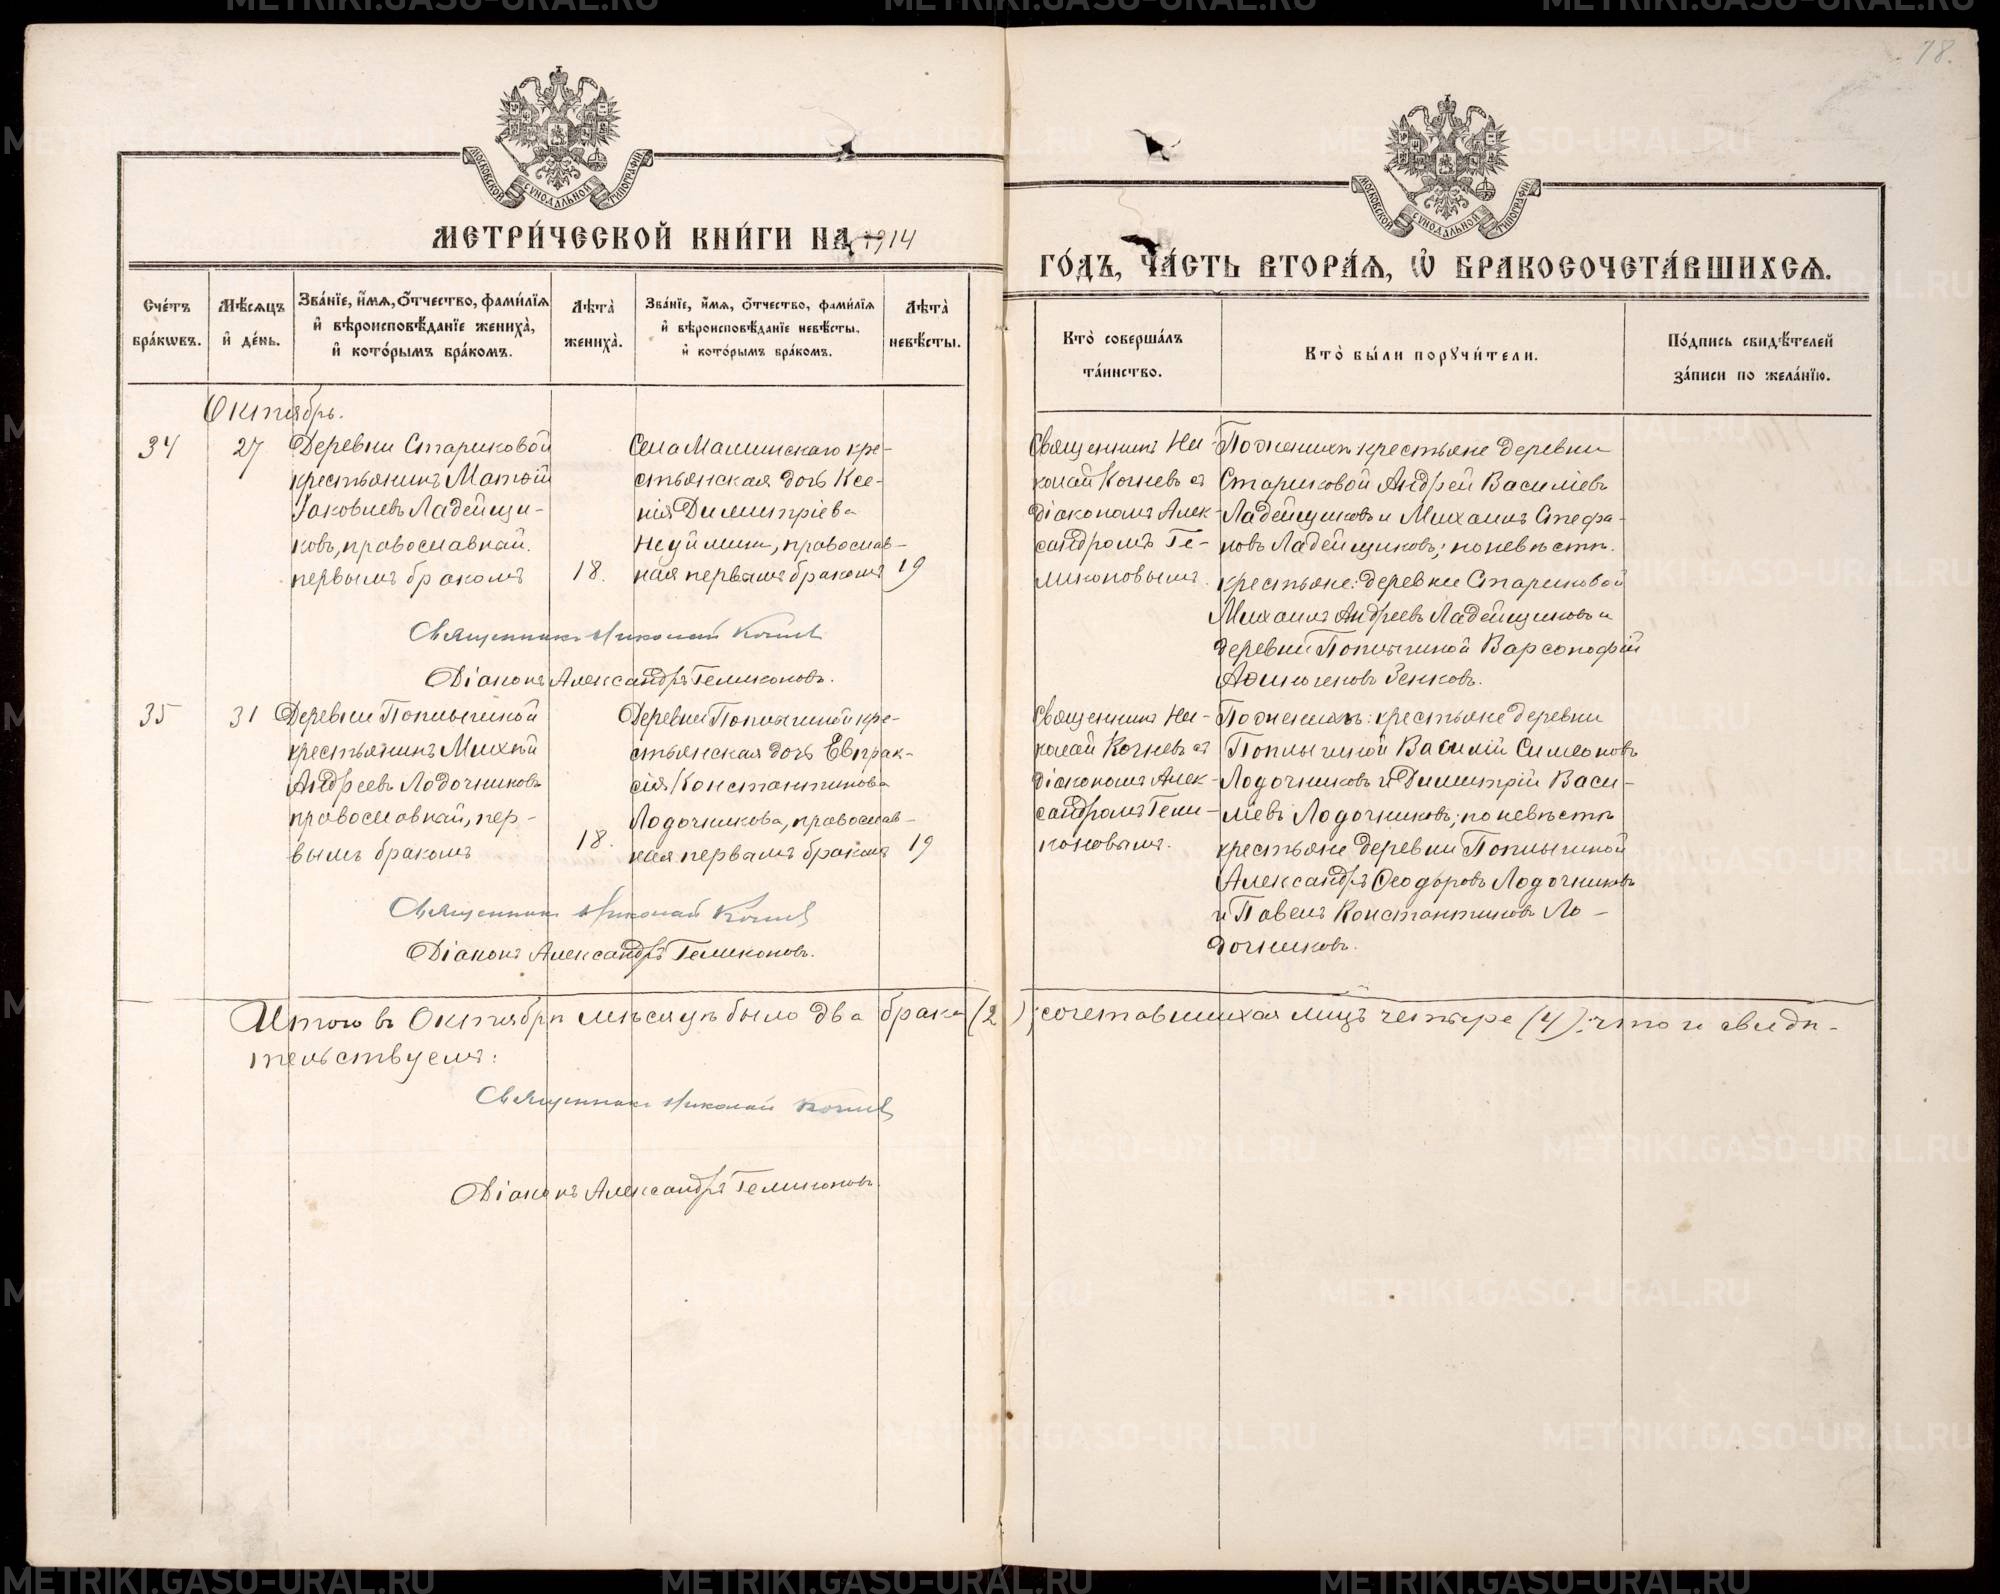 78.
МОСКОВСКОЙ СѴНОДАЛЬНОЙ ТИПОГРАФІИ
МОСКОВСКОЙ СѴНОДАЛЬНОЙ ТИПОГРАФІИ
МЕТРИ́ЧЕСКОЙ КНИ́ГИ НА 1914
ГО́ДЪ, ЧА́СТЬ ВТОРА́Я, Ѡ҆ БРАКОСОЧЕТА́ВШИХСЯ.
Сче́тъ бра́кωвъ.
Мѣ́сяцъ и҆ де́нь.
Зва́нїе, и҆́мя, ѻ҆́тчество, фами́лїя и҆ вѣроисповѣ́данїе жениха̀, и҆ кото́рымъ бра́комъ.
Лѣта̀ жениха̀.
Зва́нїе, и҆́мя, ѻ҆́тчество, фами́лїя и҆ вѣроисповѣ́данїе невѣ́сты, и҆ кото́рымъ бра́комъ.
Лѣта̀ невѣ́сты.
Кто̀ соверша́лъ та́инство.
Кто̀ бы́ли порꙋчи́тели.
По́дпись свидѣ́телей за́писи по жела́нїю.
Октябрь.
34
27
Деревни Стариковой
крестьянинъ Матѳій
Іаковлевъ Ладейщи-
ковъ, православный.
первымъ бракомъ
18.
Села Маминскаго кре-
стьянская дочь Ксе-
нія Димитріева
православ-
ная первымъ бракомъ
19
Священникъ Ни-
колай Кочневъ съ
діакономъ Алек-
сандромъ Ге-
ликоновымъ.
По женихѣ: крестьяне деревни
Стариковой Андрей Василіевъ
Ладейщиковъ и Михаилъ Стефа-
новъ Ладейщиковъ; по невѣстѣ:
крестьяне: деревни Стариковой
Михаилъ Андреевъ Ладейщиковъ и
деревни Поплыгиной Варсонофій
Аѳиногеновъ Зенковъ.
Священникъ Николай Кочнев
Діаконъ Александръ Геликоновъ.
35
31
Деревни Поплыгиной
крестьянинъ Михей
Андреевъ Лодочниковъ
православный, пер-
вымъ бракомъ
18.
Деревни Поплыгиной кре-
стьянская дочь Евпрак-
сія Константинова
Лодочникова, православ-
ная первымъ бракомъ
19
Священникъ Ни-
колай Кочневъ съ
діакономъ Алек-
сандромъ Гели-
коновымъ.
По женихѣ: крестьяне деревни
Поплыгиной Василій Симеоновъ
Лодочниковъ и Димитрій Васи-
ліевъ Лодочниковъ; по невѣстѣ
крестьяне деревни Поплыгиной
Александръ Ѳеодоровъ Лодочниковъ
и Павелъ Константиновъ Ло-
дочниковъ.
Священникъ Николай Кочнев
Діаконъ Александръ Геликоновъ.
Итого въ Октябрѣ мѣсяцѣ было два брака (2); сочетавшихся лицъ четыре (4); что и свидѣ-
тельствуемъ:
Священникъ Николай Кочнев
Діаконъ Александръ Геликоновъ.
METRIKI.GASO-URAL.RU